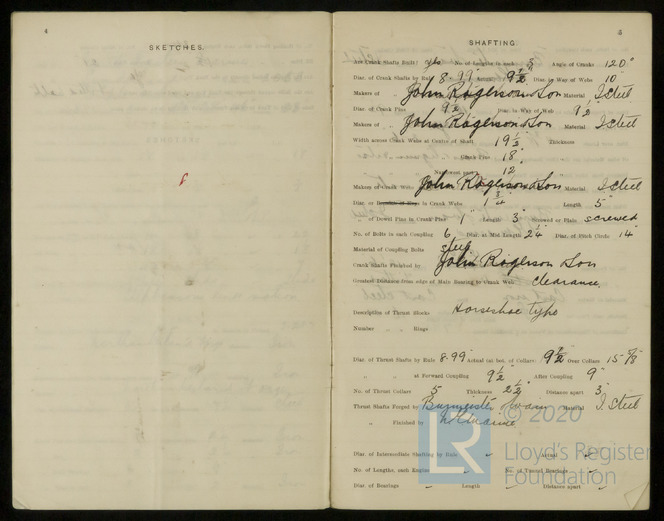 4
SKETCHES.
5
SHAFTING.
Are Crank Shafts Built? yes No. of Lengths in each Angle of Cranks 120°
Diar. of Crank Shafts by Rule 8.99" Actual 9 1/2" Diar. in Way of Webs 10"
Makers of " John Rogerson & Son Material I Steel
Diar. of Crank Pins 9 1/2" Diar. in Way of Web 9 1/2"
Makers of " John Rogerson & Son Material I Steel
Width across Crank Webs at Centre of Shaft 19 1/2" Thickness
" " Crank Pins 18"
" " Narrowest part 12"
Makers of Crank Webs John Rogerson & Son Material I Steel
Diar. of in Crank Webs 1 3/4" Length 5"
" of Dowel Pins in Crank Pins 1" Length 3" Screwed or Plain screwed
No. of Bolts in each Coupling 6 Diar. at Mid Length 2 1/4" Diar. of Pitch Circle 14"
Material of Coupling Bolts steel
Crank Shafts Finished by John Rogerson & Son
Greatest Distance from edge of Main Bearing to Crank Web clearance
Description of Thrust Blocks Horseshoe type
Number " Rings
Diar. of Thrust Shafts by Rule 8.99 Actual (at bot. of Collars) 9 1/2" Over Collars 15 5/8
" " at Forward Coupling 9 1/2" After Coupling 9"
No. of Thrust Collars 5 Thickness 2 1/2" Distance apart 3"
Thrust Shafts Forged by Burmeister Wain Material I. Steel
" Finished by
Diar. of Intermediate Shafting by Rule Actual
No. of Lengths, each Engine No. of Tunnel Bearings
Diar. of Bearings Length Distance apart
LR
© 2020
Lloyd's Register
Foundation